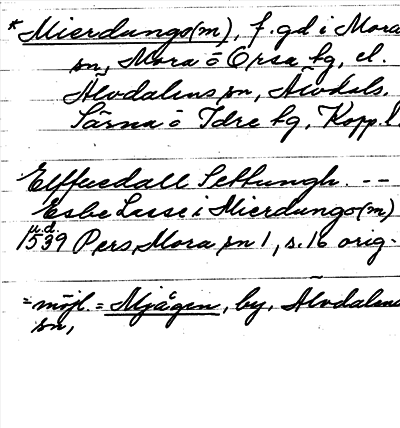 * Mierdungo(m), f. gd i Mora
sn, Mora ö Orsa tg, el.
Älvdalens sn, Älvdals.
Särna ö Idre tg, Kopp.l.
Elffuedall Settungh. --
Esbe Lasse i Mierdungo(m)
u.d.
1539 Pers, Mora sn 1, s. 16 orig.
= möjl. = Mjågen, by, Älvdalens
sn,